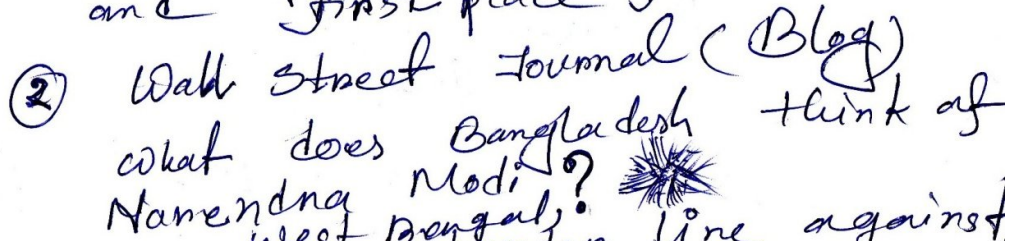 and first place
② Wall Street Journal (Blog)
what does Bangladesh think of
Narendra Modi?
West Bengal, line against